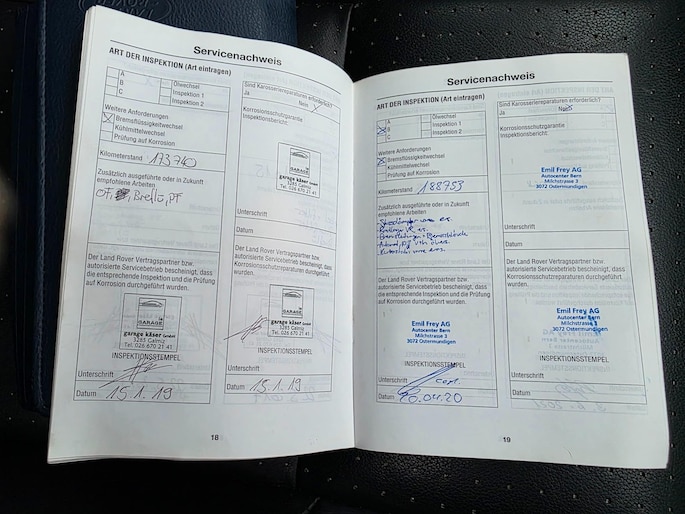 Servicenachweis
ART DER INSPEKTION (Art eintragen)
A
B
C
Ölwechsel
Inspektion 1
Inspektion 2
Weitere Anforderungen
Bremsflüssigkeitwechsel
Kühlmittelwechsel
Prüfung auf Korrosion
Kilometerstand 173740
Zusätzlich ausgeführte oder in Zukunft
empfohlene Arbeiten
Der Land Rover Vertragspartner bzw.
autorisierte Servicebetrieb bescheinigt, dass
die entsprechende Inspektion und die Prüfung
auf Korrosion durchgeführt wurden.
GARAGE
garage käser GmbH
3285 Galmiz
Tel. 026 670 21 41
INSPEKTIONSSTEMPEL
Unterschrift
Datum 15.1.19
Sind Karosseriereparaturen erforderlich?
Ja Nein
Korrosionsschutzgarantie
Inspektionsbericht:
GARAGE
garage käser GmbH
3285 Galmiz
Tel. 026 670 21 41
Unterschrift
Datum
Der Land Rover Vertragspartner bzw.
autorisierte Servicebetrieb bescheinigt, dass
Korrosionsschutzreparaturen durchgeführt
wurden.
GARAGE
garage käser GmbH
3285 Galmiz
Tel. 026 670 21 41
INSPEKTIONSSTEMPEL
Unterschrift
Datum 15.1.19
18
Servicenachweis
ART DER INSPEKTION (Art eintragen)
A
B
C
Ölwechsel
Inspektion 1
Inspektion 2
Weitere Anforderungen
Bremsflüssigkeitwechsel
Kühlmittelwechsel
Prüfung auf Korrosion
Kilometerstand 188753
Zusätzlich ausgeführte oder in Zukunft
empfohlene Arbeiten
Der Land Rover Vertragspartner bzw.
autorisierte Servicebetrieb bescheinigt, dass
die entsprechende Inspektion und die Prüfung
auf Korrosion durchgeführt wurden.
Emil Frey AG
Autocenter Bern
Milchstrasse 3
3072 Ostermundigen
INSPEKTIONSSTEMPEL
Unterschrift
Datum 20.04.20
Sind Karosseriereparaturen erforderlich?
Ja Nein
Korrosionsschutzgarantie
Inspektionsbericht:
Emil Frey AG
Autocenter Bern
Milchstrasse 3
3072 Ostermundigen
Unterschrift
Datum
Der Land Rover Vertragspartner bzw.
autorisierte Servicebetrieb bescheinigt, dass
Korrosionsschutzreparaturen durchgeführt
wurden.
Emil Frey AG
Autocenter Bern
Milchstrasse 3
3072 Ostermundigen
INSPEKTIONSSTEMPEL
Unterschrift
Datum
19